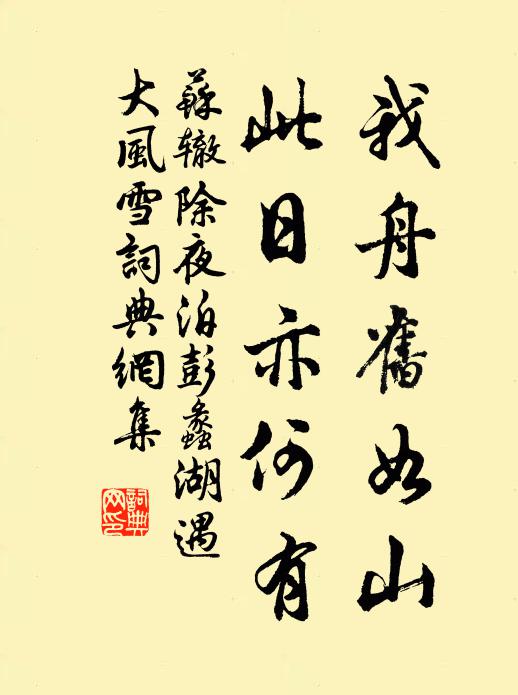 我舟舊如山
此日亦何有
蘇辙除夜泊彭蠡湖遇
大風雪詞典網集
詞典
网印